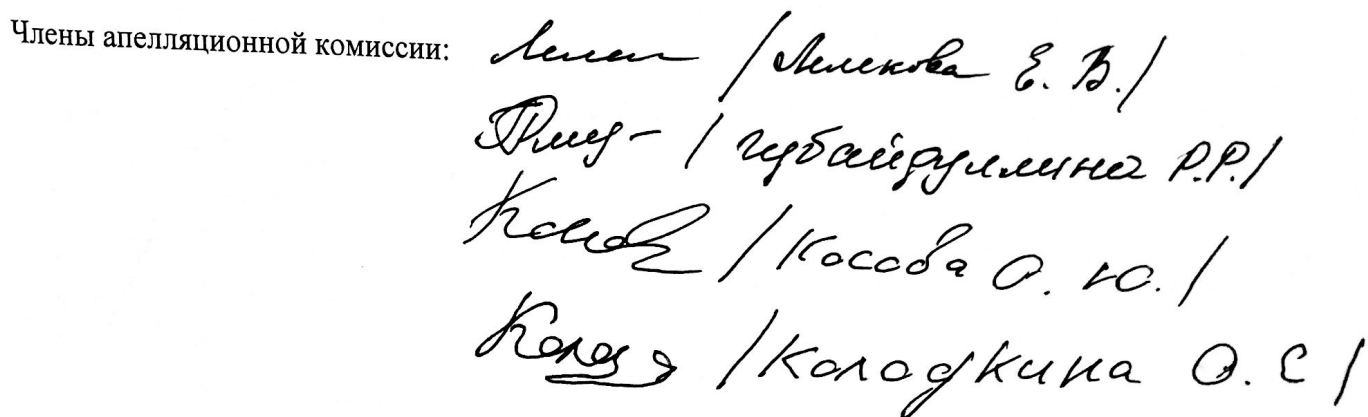 Члены апелляционной комиссии: /Лелекова Е. В./
/ Губайдуллина Р.Р./
/Косова О. Ю./
/Колодкина О. С/